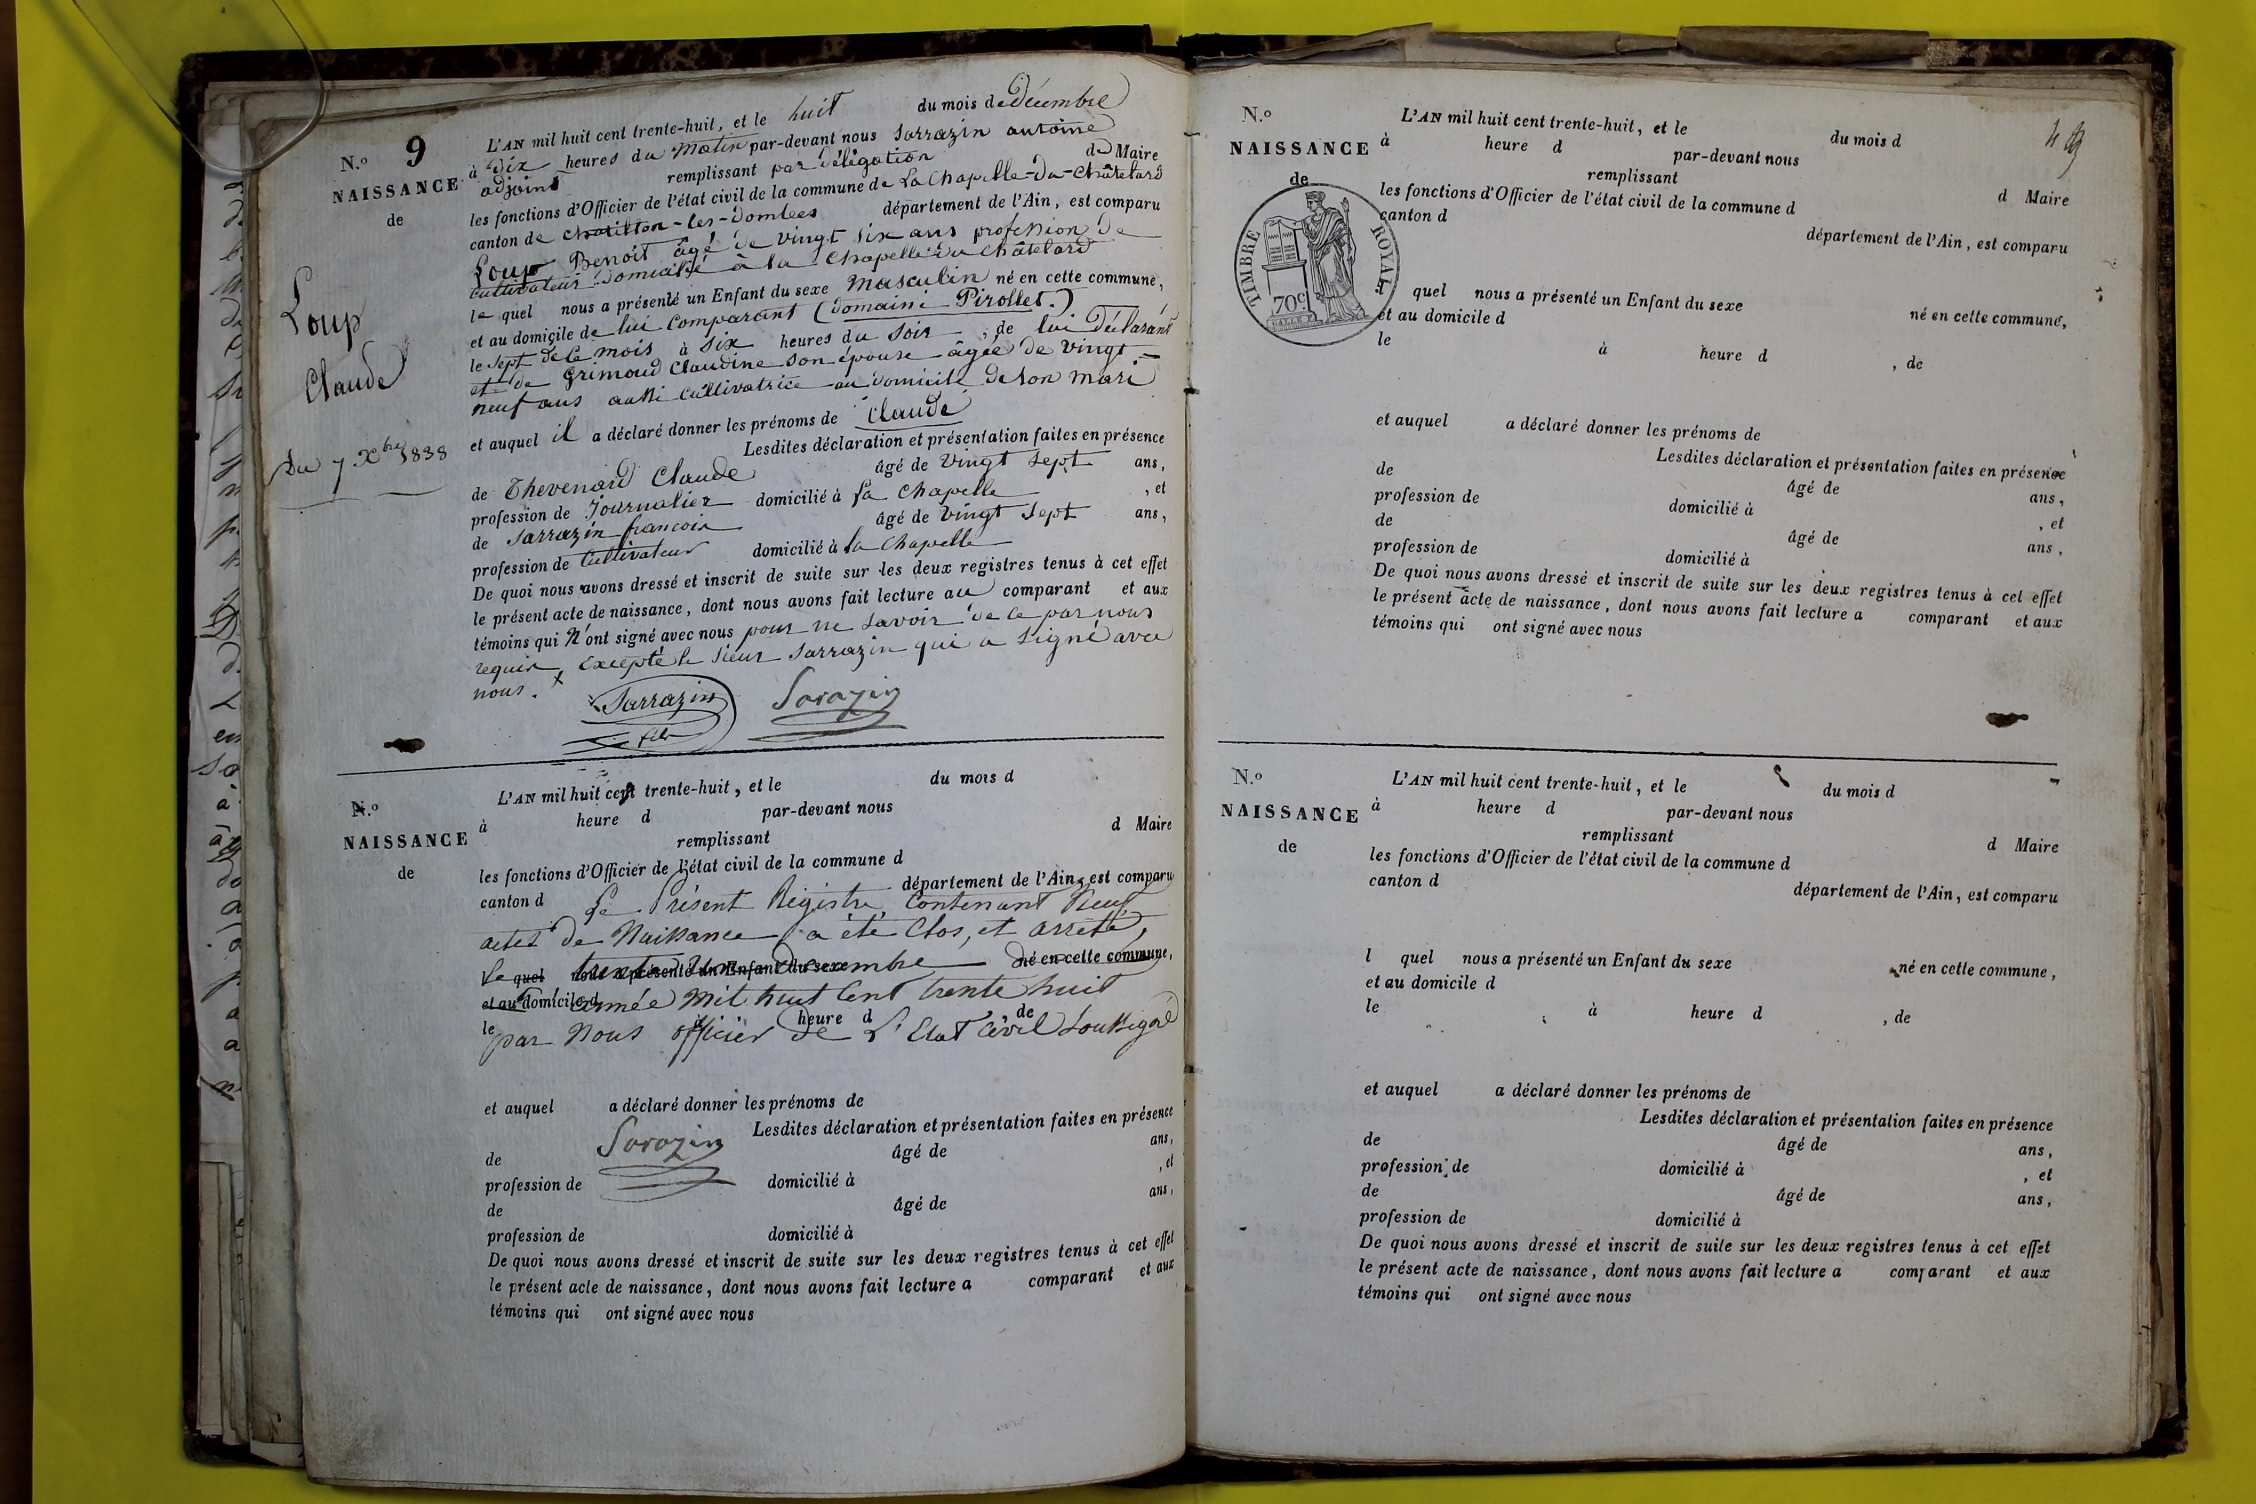 N.º 9
NAISSANCE
de
Loup
Claude
Du 7 Xbre 1838
L'AN mil huit cent trente-huit, et le huit du mois de Décembre
à dix heures du matin par-devant nous Sarrazin antoine
adjoint remplissant par délégation du Maire
les fonctions d'Officier de l'état civil de la commune de La Chapelle-Du-Châtelard
canton de Chatillon-les-Dombes département de l'Ain, est comparu
Loup Benoit âgé de vingt six ans profession de
cultivateur domicilié à la Chapelle du Châtelard
le quel nous a présenté un Enfant du sexe masculin né en cette commune,
et au domicile de lui comparant (domaine Pirollet.)
le sept de ce mois à six heures du soir, de lui Déclarant
et de Grimoud Claudine son épouse âgée de vingt
neuf ans aussi cultivatrice au domicile de son mari
et auquel il a déclaré donner les prénoms de Claude
Lesdites déclaration et présentation faites en présence
de Thevenard Claude âgé de vingt sept ans,
profession de Journalier domicilié à la Chapelle, et
de Sarrazin françois âgé de vingt sept ans,
profession de Cultivateur domicilié à la Chapelle
De quoi nous avons dressé et inscrit de suite sur les deux registres tenus à cet effet
le présent acte de naissance, dont nous avons fait lecture au comparant et aux
témoins qui n'ont signé avec nous pour ne savoir de ce par nous
requis, excepté le sieur Sarrazin qui a signé avec
nous.
Sarrazin fils Sarazin
N.º
NAISSANCE
de
L'AN mil huit cent trente-huit, et le du mois d
à heure d par-devant nous
remplissant d Maire
les fonctions d'Officier de l'état civil de la commune d
canton d département de l'Ain, est comparu
Le Présent Régistre, Contenant Neuf
actes de Naissance, a été Clos, et arrêté,
le quel nous a présenté un Enfant du sexe né en cette commune,
Le trente un Décembre
et au domicile d
année Mil huit Cent trente huit
le à heure d de
par Nous officier de L'Etat Civil Soussigné
et auquel a déclaré donner les prénoms de
Lesdites déclaration et présentation faites en présence
Sarazin
de âgé de ans,
profession de domicilié à , et
de âgé de ans,
profession de domicilié à
De quoi nous avons dressé et inscrit de suite sur les deux registres tenus à cet effet
le présent acte de naissance, dont nous avons fait lecture a comparant et aux
témoins qui ont signé avec nous
N.º
NAISSANCE
de
TIMBRE ROYAL
70c
L'AN mil huit cent trente-huit, et le du mois d
à heure d par-devant nous
remplissant d Maire
les fonctions d'Officier de l'état civil de la commune d
canton d département de l'Ain, est comparu
quel nous a présenté un Enfant du sexe né en cette commune,
et au domicile d
le à heure d , de
et auquel a déclaré donner les prénoms de
Lesdites déclaration et présentation faites en présence
de âgé de ans,
profession de domicilié à , et
de âgé de ans,
profession de domicilié à
De quoi nous avons dressé et inscrit de suite sur les deux registres tenus à cet effet
le présent acte de naissance, dont nous avons fait lecture a comparant et aux
témoins qui ont signé avec nous
N.º
NAISSANCE
de
L'AN mil huit cent trente-huit, et le du mois d
à heure d par-devant nous
remplissant d Maire
les fonctions d'Officier de l'état civil de la commune d
canton d département de l'Ain, est comparu
l quel nous a présenté un Enfant du sexe né en cette commune,
et au domicile d
le à heure d , de
et auquel a déclaré donner les prénoms de
Lesdites déclaration et présentation faites en présence
de âgé de ans,
profession de domicilié à , et
de âgé de ans,
profession de domicilié à
De quoi nous avons dressé et inscrit de suite sur les deux registres tenus à cet effet
le présent acte de naissance, dont nous avons fait lecture a comparant et aux
témoins qui ont signé avec nous